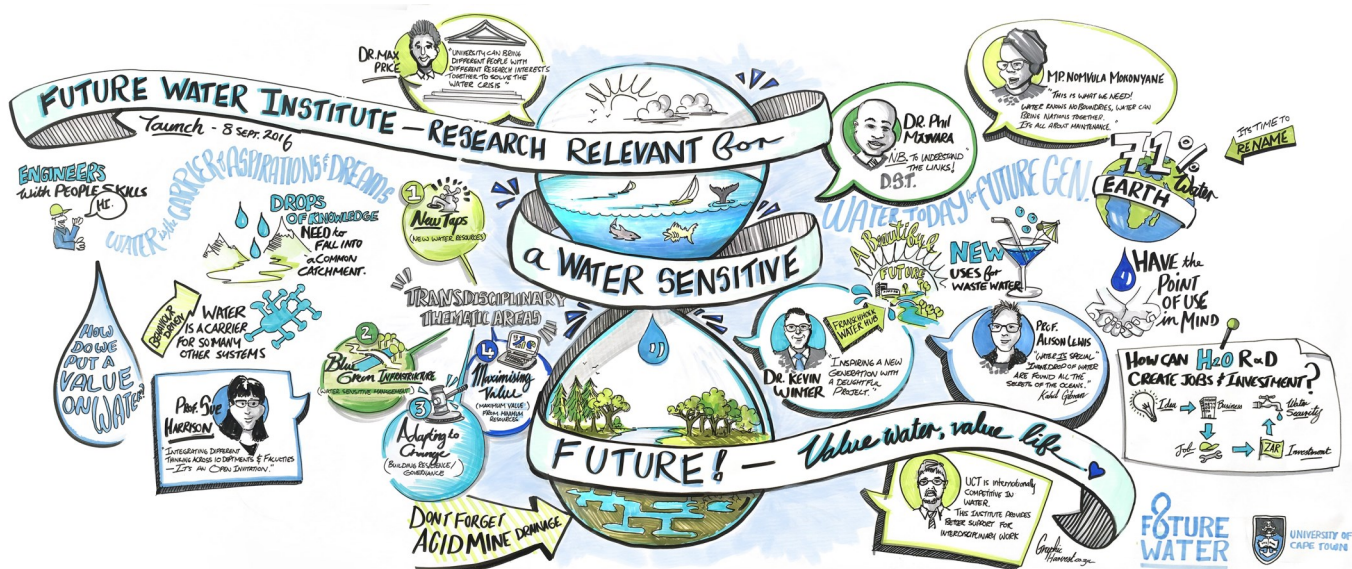 FUTURE WATER INSTITUTE – RESEARCH RELEVANT for
a WATER SENSITIVE
FUTURE! – Value water, value life
Launch - 8 SEPT. 2016
DR. MAX
PRICE
"UNIVERSITY CAN BRING
DIFFERENT PEOPLE WITH
DIFFERENT RESEARCH INTERESTS
TOGETHER TO SOLVE THE
WATER CRISIS"
ENGINEERS
with PEOPLE SKILLS
HI.
WATER is the CARRIER of ASPIRATIONS & DREAMS
DROPS
OF KNOWLEDGE
NEED to
FALL INTO
a COMMON
CATCHMENT.
HOW
DO WE
PUT A
VALUE
ON
WATER?
RESEARCH
WATER
IS A CARRIER
FOR SO MANY
OTHER SYSTEMS
PROF. SUE
HARRISON
"INTEGRATING DIFFERENT
THINKING ACROSS 10 DEPTMENTS & FACULTIES
– IT'S AN OPEN INVITATION."
1
New Taps
(NEW WATER RESOURCES)
TRANSDISCIPLINARY
THEMATIC AREAS
2
Blue
Green INFRASTRUCTURE
(WATER SENSITIVE MANAGEMENT)
3
Adapting to
Change
(BUILDING RESILIENCE/
GOVERNANCE)
4
Maximising
Value
(MAXIMUM VALUE
FROM MINIMUM
RESOURCES)
DON'T FORGET
ACID MINE DRAINAGE
DR. PHIL
MJWARA
N.B. TO UNDERSTAND
THE LINKS!
D.S.T.
MP. NOMVULA MOKONYANE
"THIS IS WHAT WE NEED!
WATER KNOWS NO BOUNDARIES, WATER CAN
BRING NATIONS TOGETHER.
IT'S ALL ABOUT MAINTENANCE."
71%
Water
EARTH
IT'S TIME TO
RENAME
WATER TODAY for FUTURE GEN.
A Beautiful
FUTURE
NEW
USES for
WASTE WATER
HAVE the
POINT
OF USE
in MIND
DR. KEVIN
WINTER
FRANSCHHOEK
WATER HUB
"INSPIRING A NEW
GENERATION WITH
A DELIGHTFUL
PROJECT."
PROF.
ALISON LEWIS
"WATER IS SPECIAL"
"IN ONE DROP OF WATER
ARE FOUND ALL THE
SECRETS OF THE OCEANS."
Kahlil Gibran
HOW CAN H2O R&D
CREATE JOBS & INVESTMENT?
Idea
Business
Water
Security
Job
ZAR
Investment
UCT IS INTERNATIONALLY
COMPETITIVE IN
WATER.
THIS INSTITUTE PROVIDES
BETTER SUPPORT FOR
INTERDISCIPLINARY WORK
Graphic
Harvest.co.za
FUTURE
WATER
UNIVERSITY OF
CAPE TOWN